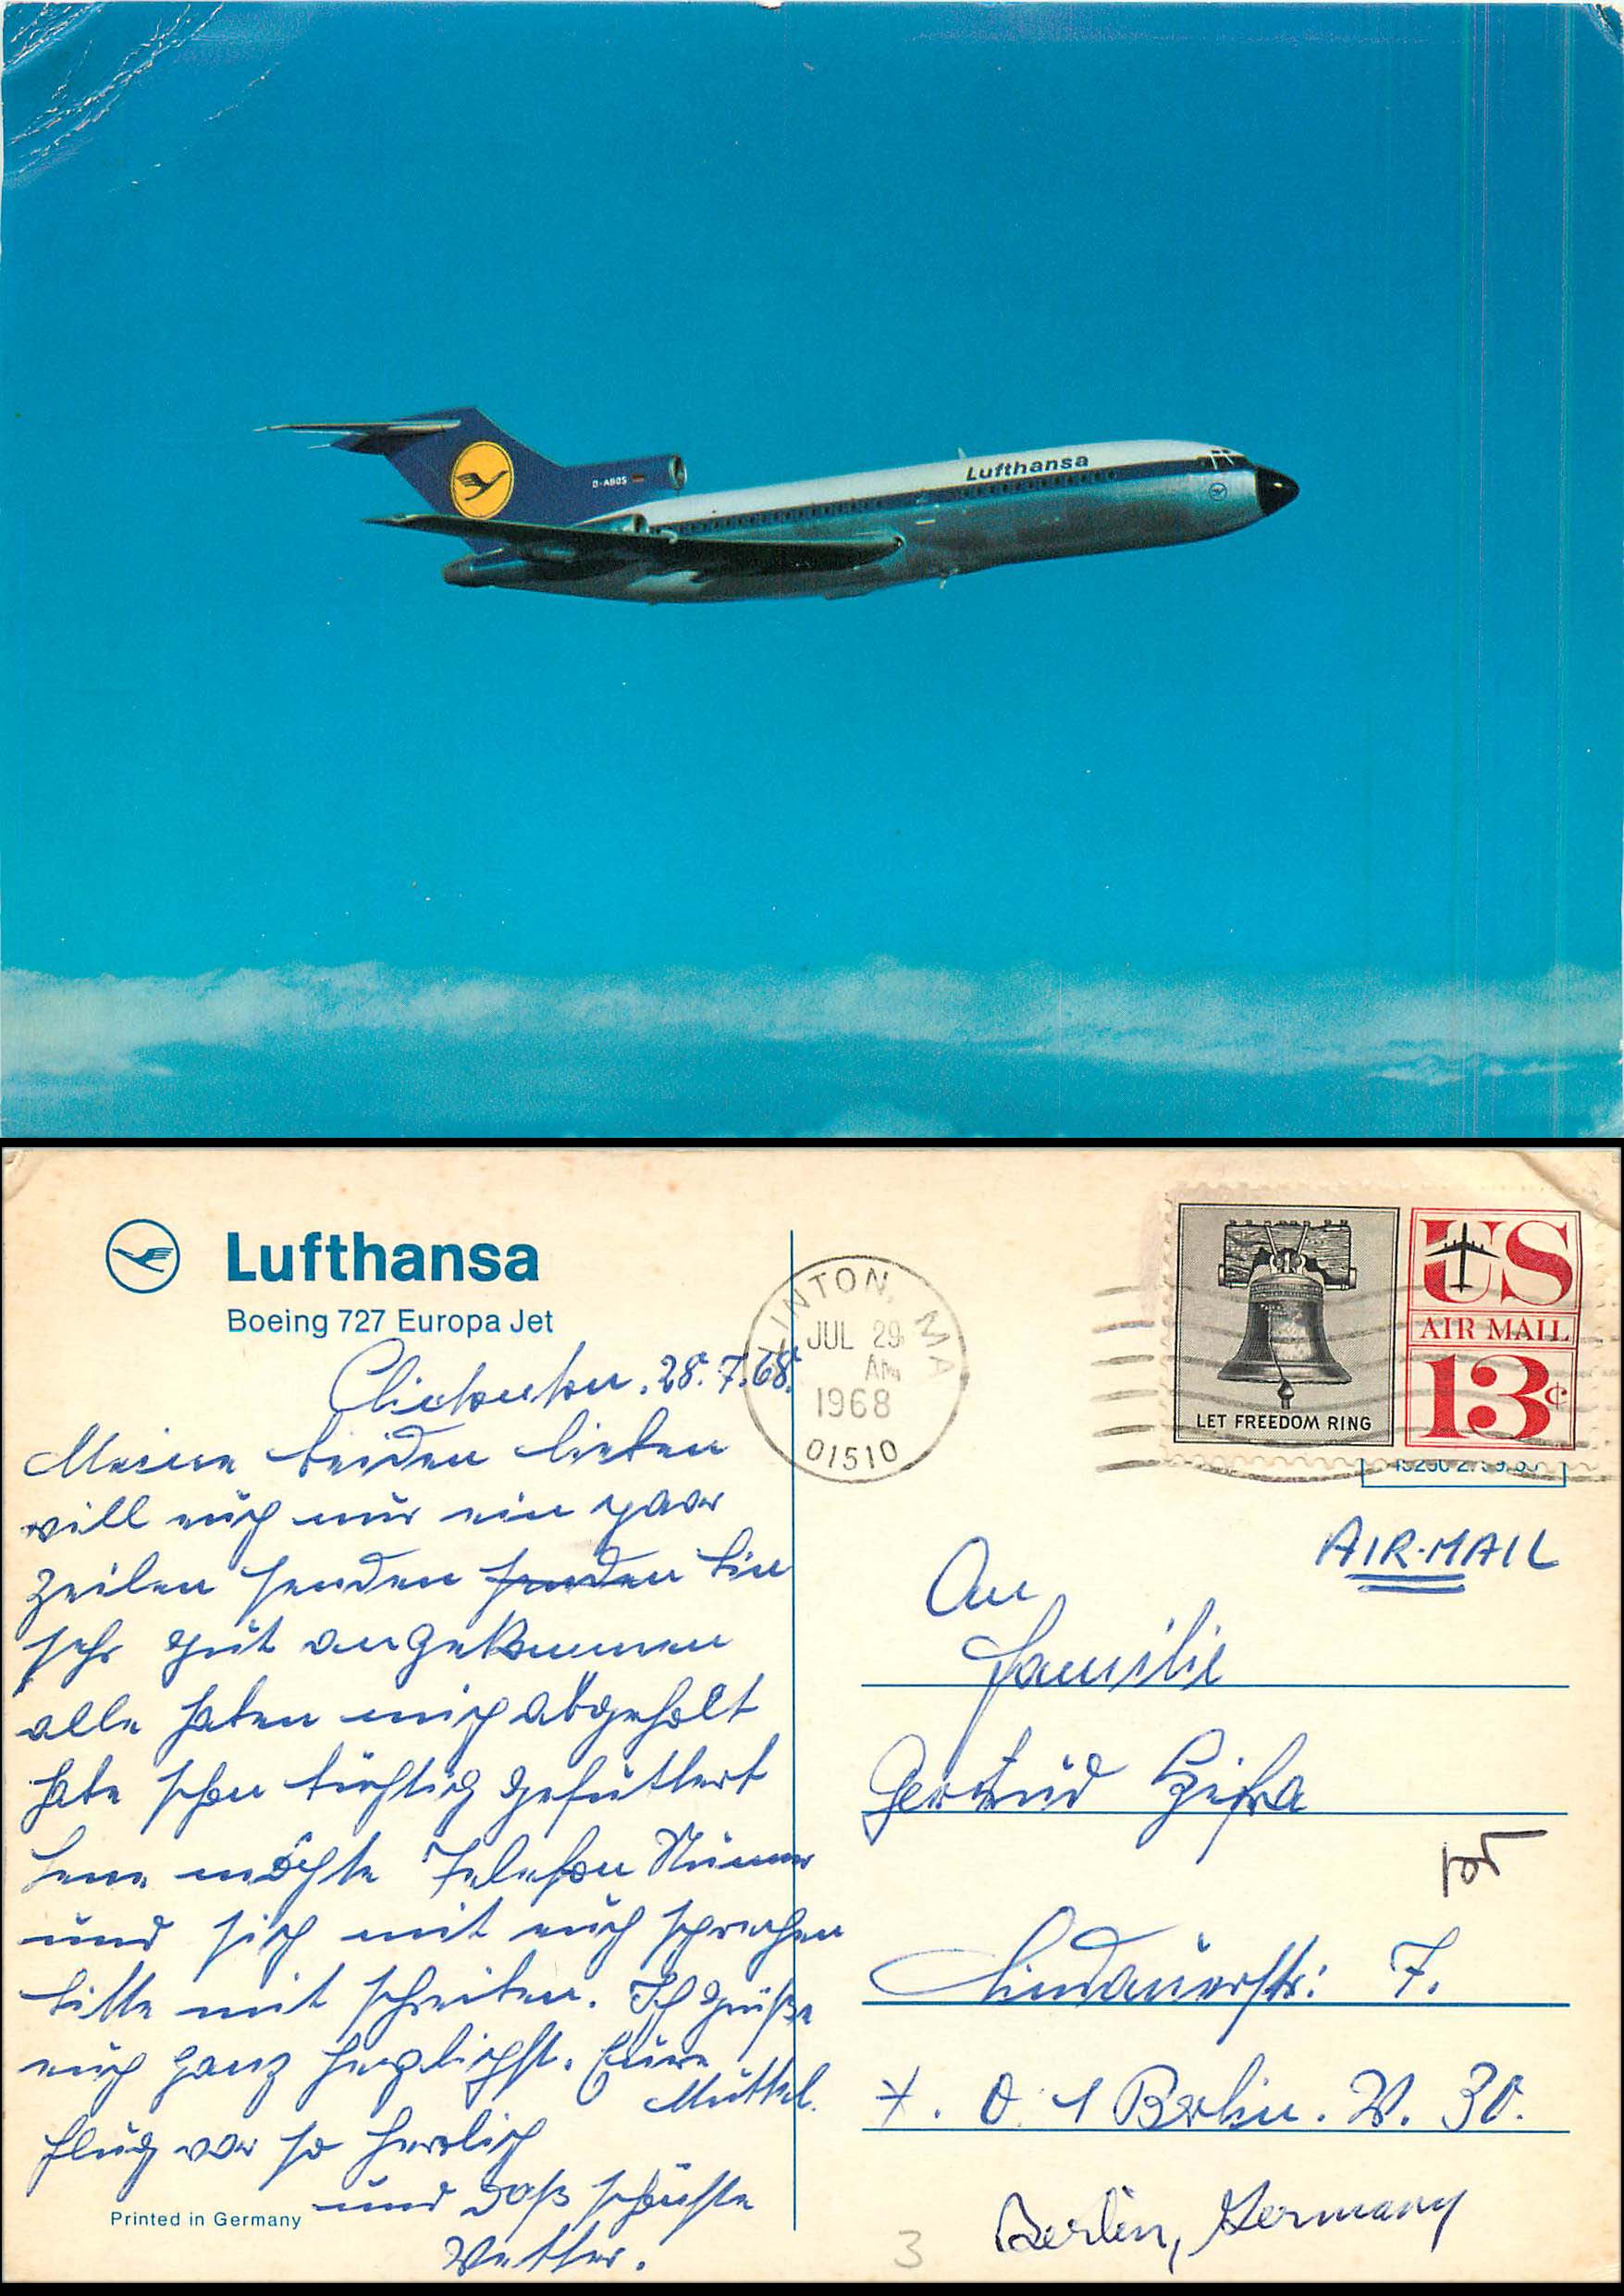 Lufthansa
D-ABOS
Lufthansa
Boeing 727 Europa Jet
28. 7. 68.
Meine beiden lieben
will euch nur ein paar
Zeilen senden senden bin
sehr gut angekommen
alle haben mich abgeholt
habe schon tüchtig gefüttert
möchte Telefon Nummer
und sich mit euch sprechen
bitte mit schreiben. Ich grüße
euch ganz herzlichst. Eure
Muttel.
flug war so herrlich
und daß schönste
Wetter.
Printed in Germany
CLINTON, MA
JUL 29
AM
1968
01510
US
AIR MAIL
13¢
LET FREEDOM RING
AIR-MAIL
An
Familie
Gertrud
Lindauerstr: 7.
1 Berlin. W. 30.
Berlin, Germany
3